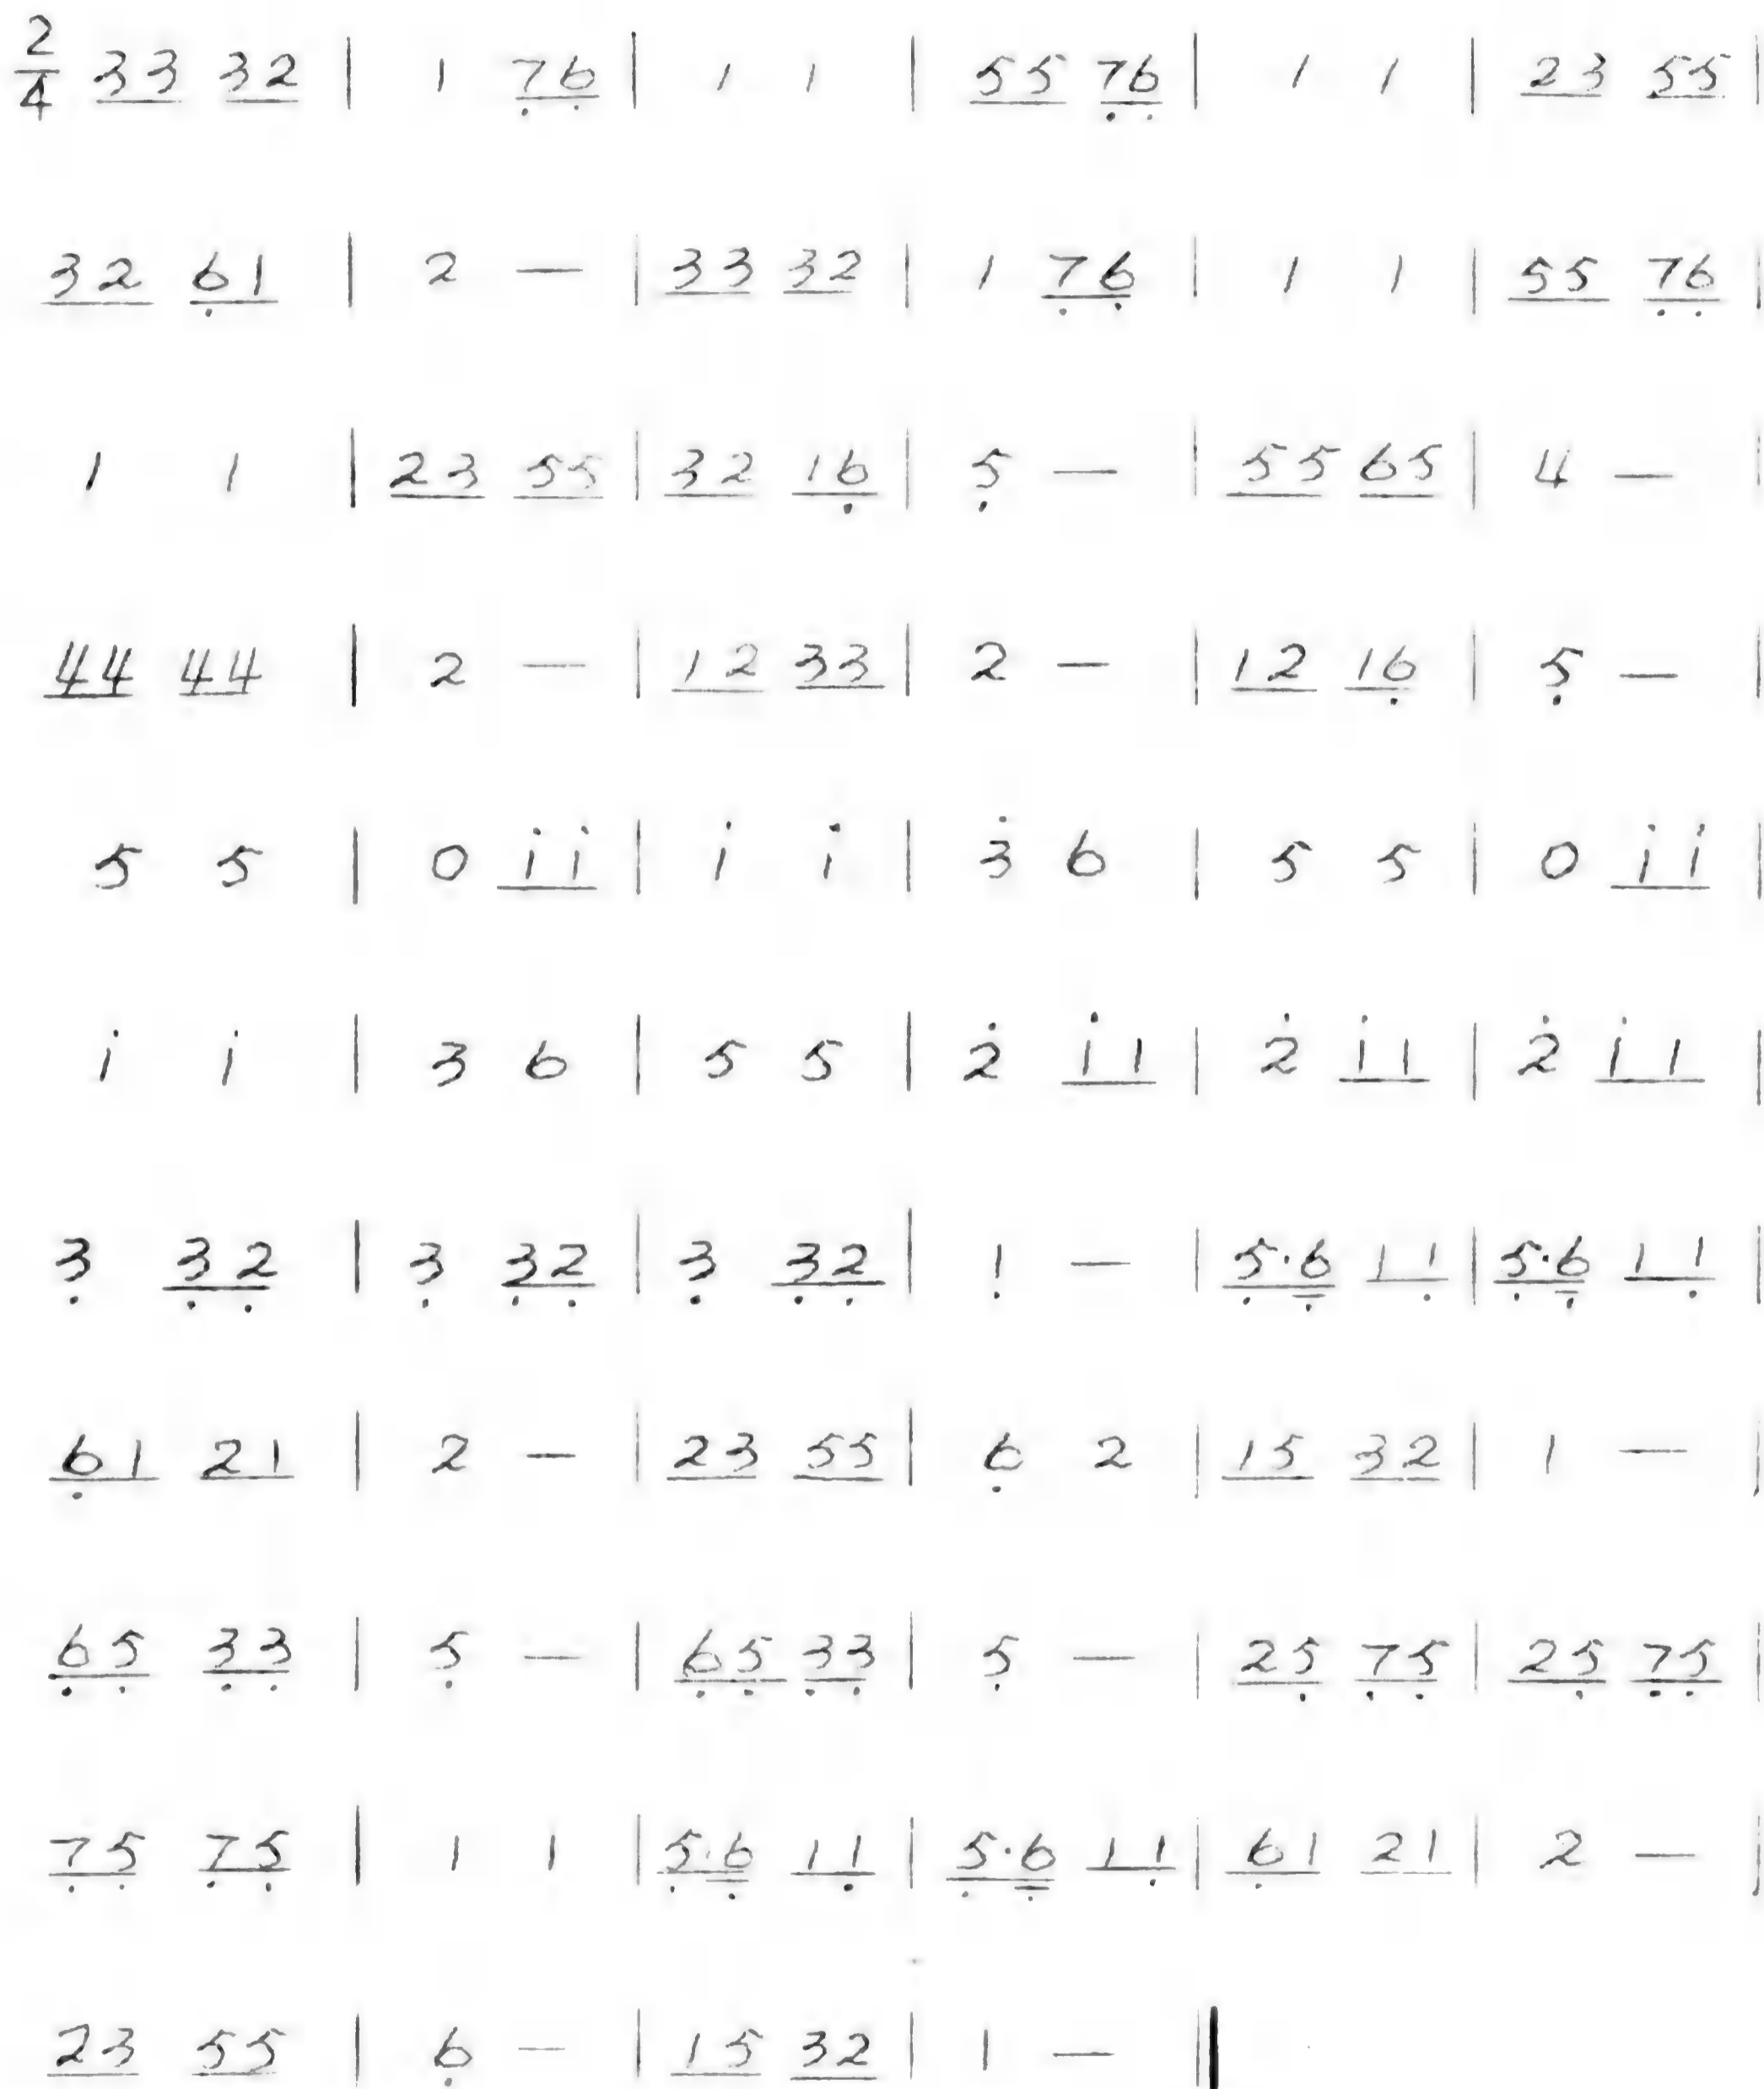 2/4 33 32 | 1 7̣6̣ | 1 1 | 55 7̣6̣ | 1 1 | 23 55 |
32 6̣1 | 2 — | 33 32 | 1 7̣6̣ | 1 1 | 55 7̣6̣ |
1 1 | 23 55 | 32 16̣ | 5̣ — | 55 65 | 4 — |
44 44 | 2 — | 12 33 | 2 — | 12 16̣ | 5̣ — |
5 5 | 0 1̇1̇ | 1̇ 1̇ | 3̇ 6 | 5 5 | 0 1̇1̇ |
1̇ 1̇ | 3 6 | 5 5 | 2̇ 1̇1 | 2̇ 1̇1 | 2̇ 1̇1 |
3̣ 3̣2̣ | 3̣ 3̣2̣ | 3̣ 3̣2̣ | 1̣ — | 5̣·6̣ 11̣ | 5̣·6̣ 11̣ |
6̣1 21 | 2 — | 23 55 | 6̣ 2 | 15 32 | 1 — |
6̣5̣ 3̣3̣ | 5̣ — | 6̣5̣ 3̣3̣ | 5̣ — | 25̣ 7̣5̣ | 25̣ 7̣5̣ |
7̣5̣ 7̣5̣ | 1 1 | 5̣·6̣ 11̣ | 5̣·6̣ 11̣ | 6̣1 21 | 2 — |
23 55 | 6̣ — | 15 32 | 1 — ‖